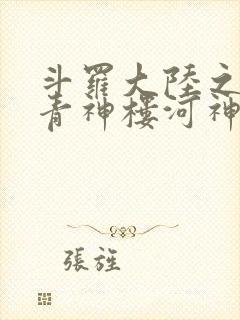 斗羅大陸之
青神樓河神
張旌